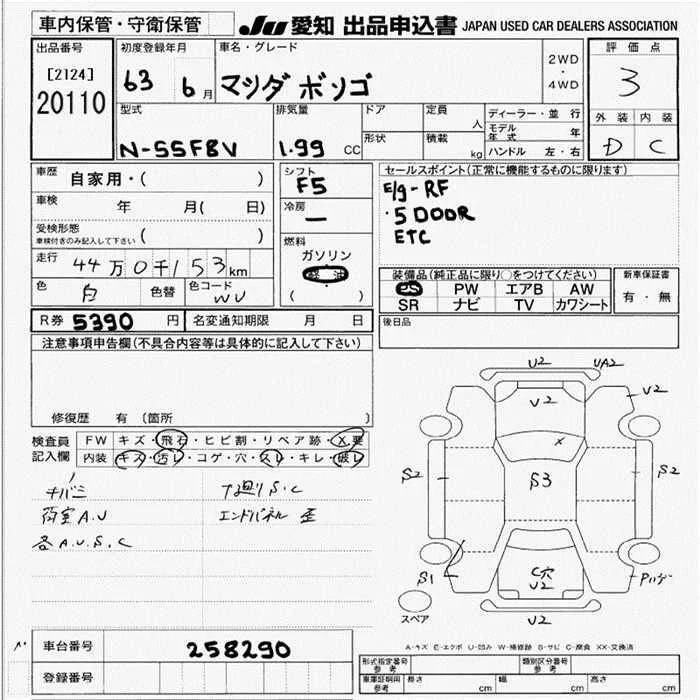 車内保管・守衛保管
JU 愛知 出品申込書 JAPAN USED CAR DEALERS ASSOCIATION
出品番号
[2124]
20110
初度登録年月
63 6 月
車名・グレード
マツダ ボンゴ
2WD
・
4WD
評価点
3
外装 内装
D C
型式
N-SSF8V
排気量
1.99 CC
ドア
形状
定員
人
積載
kg
ディーラー・並 行
モデル年式 年
ハンドル 左・右
車歴
自家用・( )
車検
年 月( 日)
受検形態
車検付きのみ記入して下さい ( )
走行
44万0千153km
色
白
色替
色コード
WU
シフト
F5
冷房
ー
燃料
ガソリン
軽油
( )
セールスポイント(正常に機能するものに限ります)
E/g-RF
・5 DOOR
ETC
装備品(純正品に限り○をつけてください)
PS PW エアB AW
SR ナビ TV カワシート
新車保証書
有・無
R券 5390 円
名変通知期限 月 日
後日品
注意事項申告欄(不具合内容等は具体的に記入して下さい)
修復歴 有 (箇所 )
検査員
記入欄
FW キズ・飛石・ヒビ割・リペア跡・X要
内装 キズ・汚レ・コゲ・穴・スレ・キレ・破レ
キバミ
荷室A.U
各A.U.S.C
下廻りS.C
エンドパネル 歪
U2
UA2
U2
U2
X
S2
S3
S2
S1
C穴
U2
U2
スペア
A-キズ E-エクボ U-凹み W-補修跡 S-サビ C-腐食 XX-交換済
車台番号
258290
登録番号
形式指定番号
参考
類別区分番号
参考
車庫証明用
参考
長さ cm
幅 cm
高さ cm